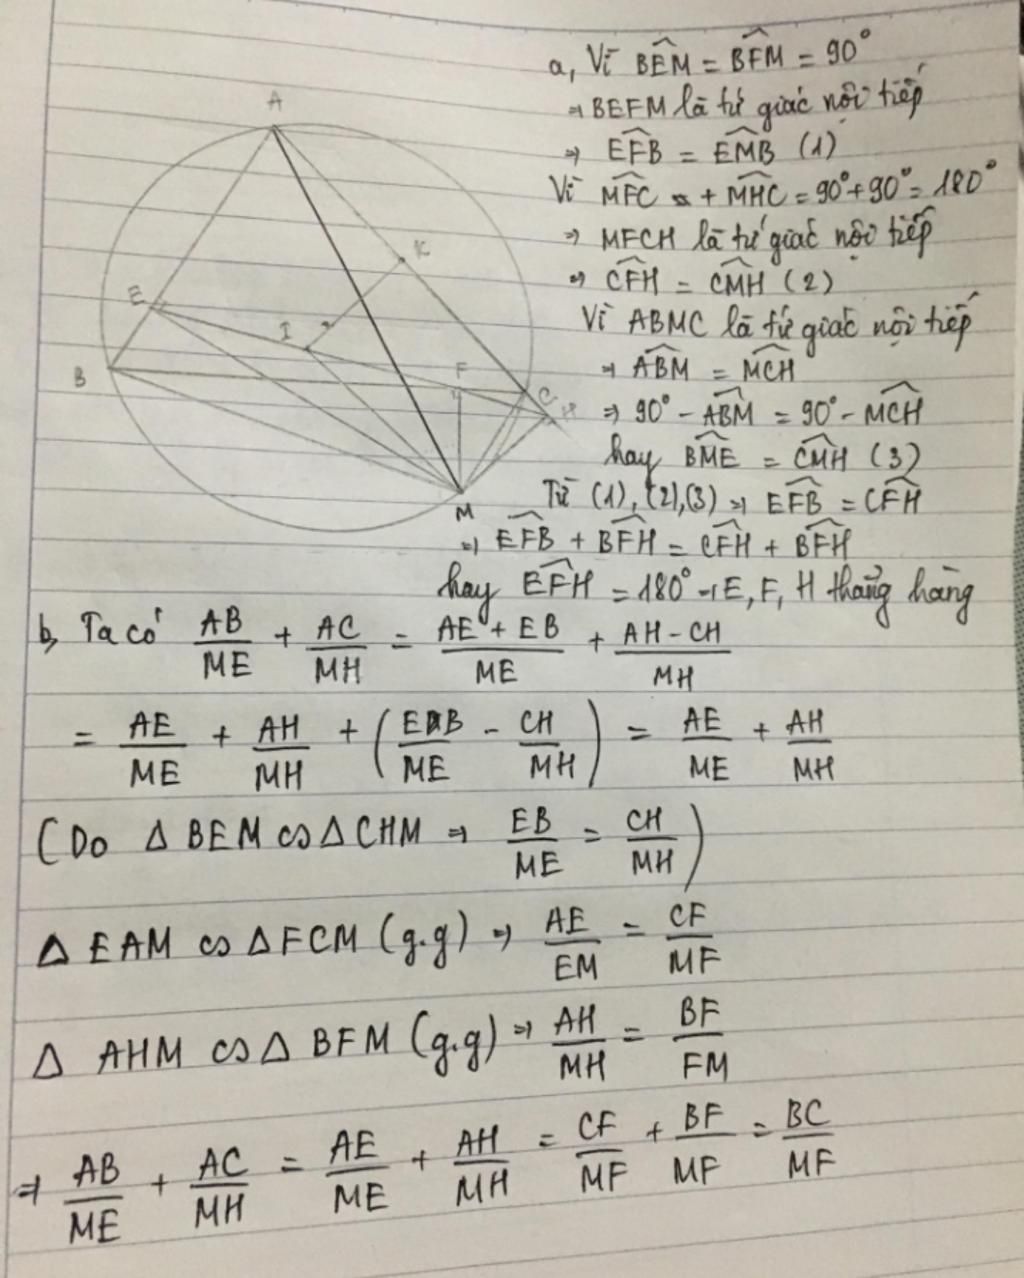 A
K
E
I
B
F
C
H
M
a, Vì BÊM = BF̂M = 90°
⇒ BEFM là tứ giác nội tiếp
⇒ EF̂B = EM̂B (1)
Vì MF̂C + MĤC = 90° + 90° = 180°
⇒ MFCH là tứ giác nội tiếp
⇒ CF̂H = CM̂H (2)
Vì ABMC là tứ giác nội tiếp
⇒ AB̂M = MĈH
⇒ 90° - AB̂M = 90° - MĈH
hay BM̂E = CM̂H (3)
Từ (1), (2), (3) ⇒ EF̂B = CF̂H
⇒ EF̂B + BF̂H = CF̂H + BF̂H
hay EF̂H = 180° ⇒ E, F, H thẳng hàng
b, Ta có AB/ME + AC/MH = AE + EB/ME + AH - CH/MH
= AE/ME + AH/MH + (EB/ME - CH/MH) = AE/ME + AH/MH
(Do Δ BEM ∽ Δ CHM ⇒ EB/ME = CH/MH)
Δ EAM ∽ Δ FCM (g.g) ⇒ AE/EM = CF/MF
Δ AHM ∽ Δ BFM (g.g) ⇒ AH/MH = BF/FM
⇒ AB/ME + AC/MH = AE/ME + AH/MH = CF/MF + BF/MF = BC/MF